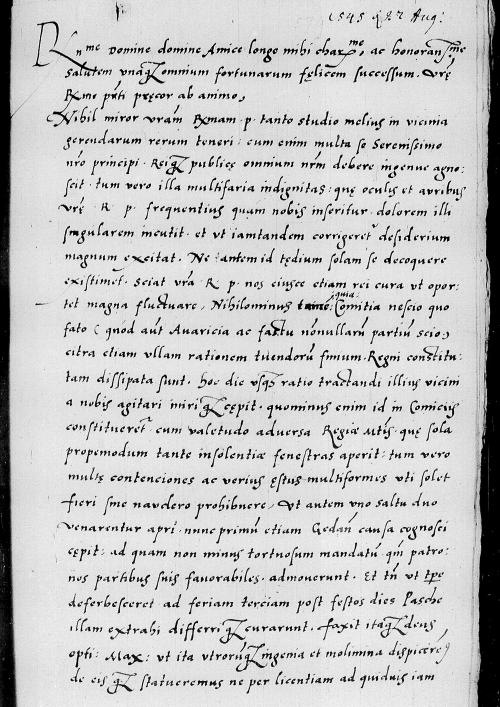 1545 22 Aug:
R me Domine domine Amice longe mihi charme, ac honoranme,
Salutem unaqz omnium fortunarum fęlicem successum. Vrę
Rme pr̄ti pręcor ab animo,
Nihil miror vram̄ Rmam p. tanto studio melius in vicinia
gerendarum rerum teneri: cum enim multa se Serenissimo
nr̄o principi. Reiqz publicę omnium nr̄m debere ingenue agno:
scit. tum vero illa multifaria indignitas: quę oculis et auribus
vrę R p. frequentius quam nobis inseritur. dolorem illi
singularem incutit. et ut iamtandem corrigeret desiderium
magnum excitat. Ne autem id tędium solam se decoquere
existimet. Sciat vrā R p. nos eiusce etiam rei cura ut opor:
tet magna fluctuare, Nihilominus quia Comitia nescio quo
fato (quod aut Avaricia ac factu nōnullarū partiū scio)
citra etiam ullam rationem tuendorū finium. Regni constitu:
tam dissipata sunt. hoc die usqz ratio tractandi illius vicini
a nobis agitari qz cępit. quominus enim id in Comiciis
constitueret. cum valetudo adversa Regiae Mtis. quę sola
propemodum tantę insolentiae fenestras aperit: tum vero
multę contenciones ac verius ęstus multiformes uti solet
fieri sine nauclero prohibuere, Ut autem uno saltu duo
venarentur apri. nunc primū etiam Gedan̄ causa cognosci
cępit: ad quam non minus tortuosum mandatū qm̄ patro:
nos partibus suis favorabiles. admoverunt. Et tn̄ ut tpe
deferbesceret ad feriam terciam post festos dies Pasche
illam extrahi differri qz curarunt. faxit itaqz deus
opti: Max: ut ita utrorūqz ingenia et molimina dispicere
de eis qz statueremus ne per licentiam ad quiduis iam